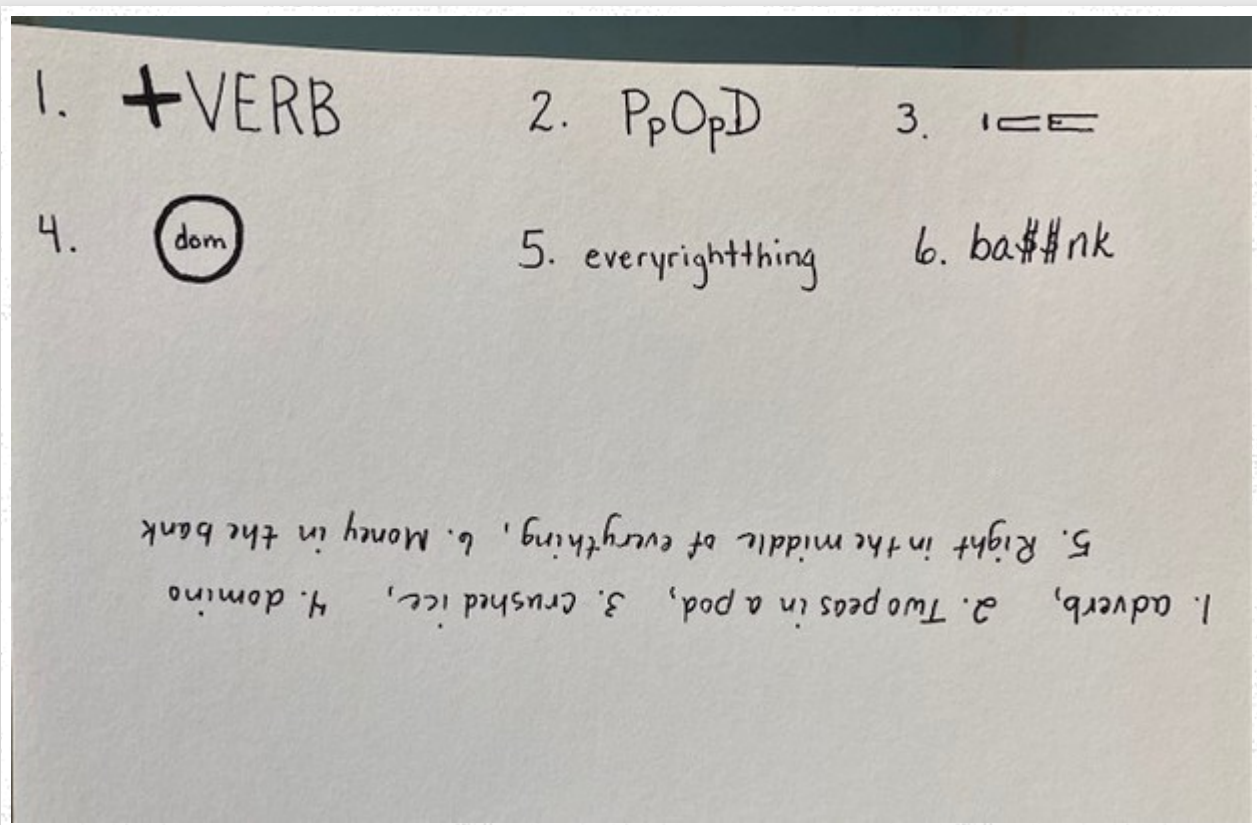 1. +VERB 2. PpOpD 3. ICE
4. dom 5. everyrightthing 6. ba$$nk
1. adverb, 2. Two peas in a pod, 3. crushed ice, 4. domino
5. Right in the middle of everything, 6. Money in the bank